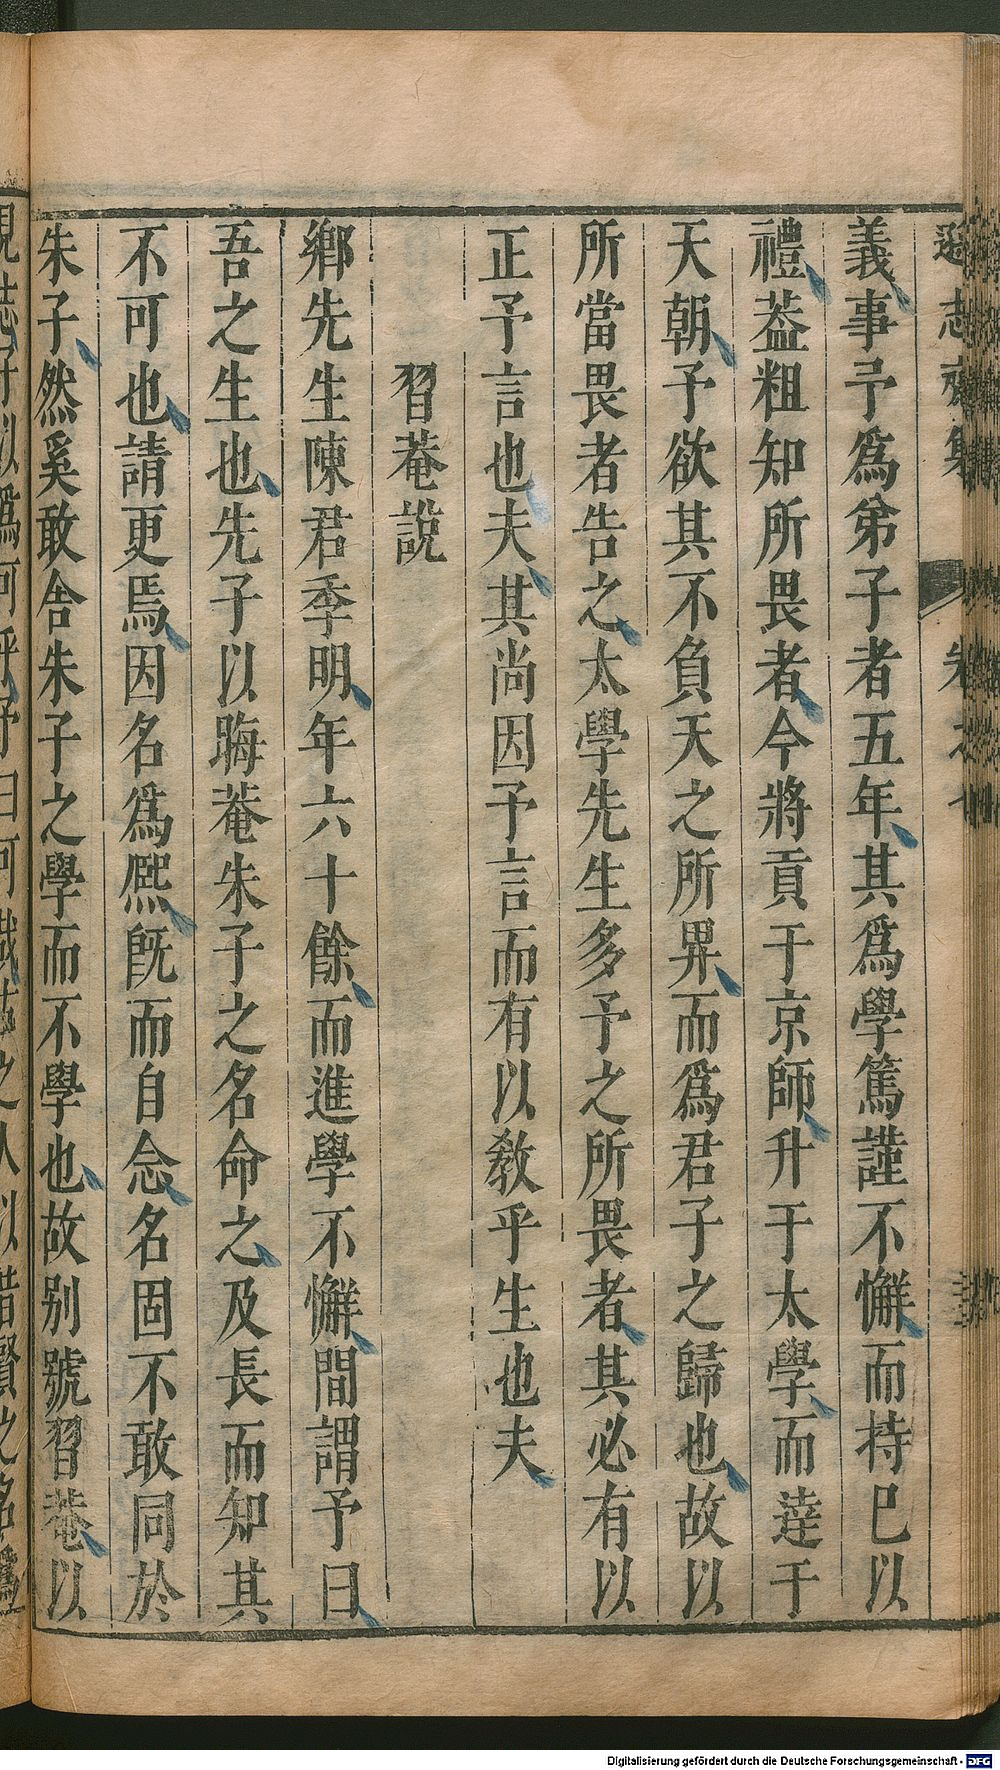 遜志齋集 卷之七
義事予爲弟子者五年其爲學篤謹不懈而持已以
禮葢粗知所畏者今將貢于京師升于太學而逹于
天朝予欲其不負天之所畀而爲君子之歸也故以
所當畏者告之太學先生多予之所畏者其必有以
正予言也夫其尚因予言而有以敎乎生也夫
習菴說
鄕先生陳君季明年六十餘而進學不懈間謂予曰
吾之生也先子以晦菴朱子之名命之及長而知其
不可也請更焉因名爲熈旣而自念名固不敢同於
朱子然奚敢舍朱子之學而不學也故别號習菴以
Digitalisierung gefördert durch die Deutsche Forschungsgemeinschaft - DFG